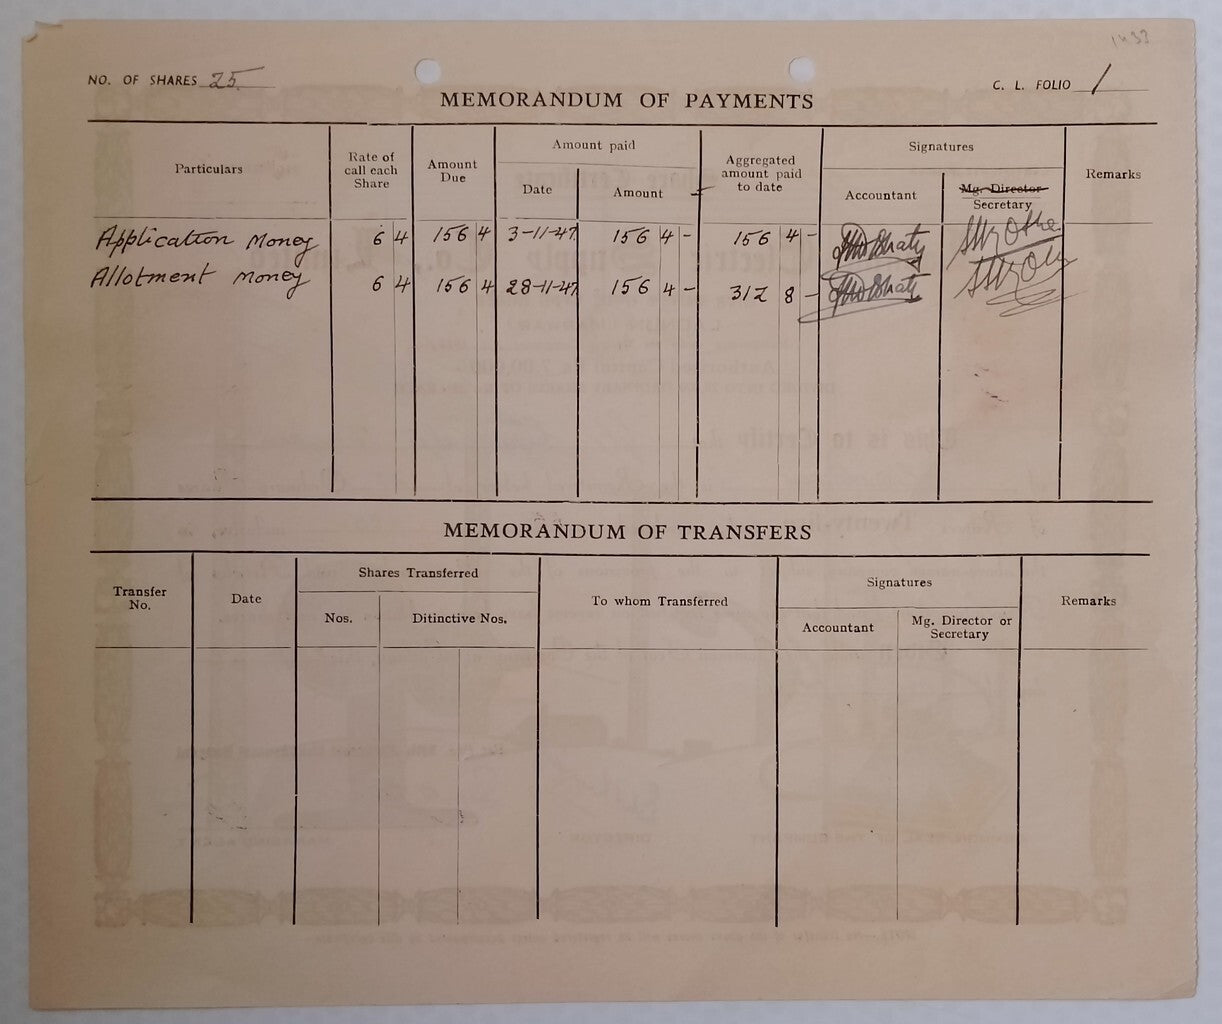 NO. OF SHARES 25
C. L. FOLIO 1
MEMORANDUM OF PAYMENTS
Particulars
Rate of call each Share
Amount Due
Amount paid
Date
Amount
Aggregated amount paid to date
Signatures
Accountant
Mg. Director
Secretary
Remarks
Application Money 6 4 156 4 3-11-47 156 4 - 156 4 -
Allotment Money 6 4 156 4 28-11-47 156 4 - 312 8 -
MEMORANDUM OF TRANSFERS
Transfer No.
Date
Shares Transferred
Nos.
Ditinctive Nos.
To whom Transferred
Signatures
Accountant
Mg. Director or Secretary
Remarks